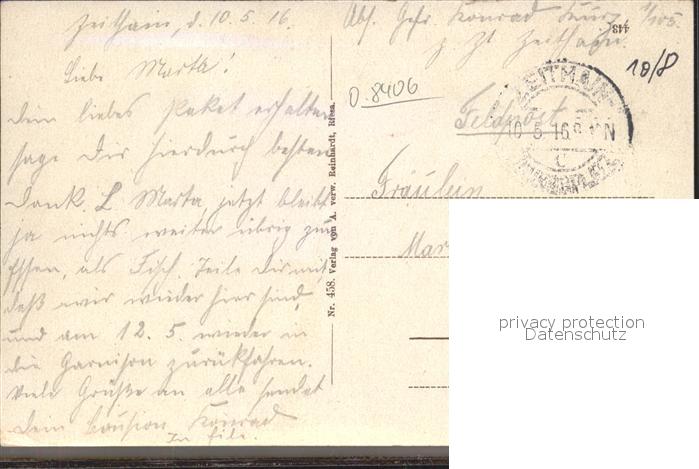 Zeithain, d. 10.5.16.
Liebe Marta!
Dein liebes Paket erhalten
sage Dir hierdurch besten
Dank. L. Marta, jetzt bleibt
ja nichts weiter übrig zum
Essen, als Fisch. Teile Dir mit,
daß wir wieder hier sind,
und am 12. 5. wieder in
die Garnison zurückfahren.
Viele Grüße an alle sendet
Dein Cousin Konrad
In Eile.
Nr. 458. Verlag von A. verw. Reinhardt, Riesa.
Abs. Gefr. Konrad
z. Zt Zeithain.
413
18/8
0-8406
Feldpost
10 5 16
N
C
Fräulein
Mar
privacy protection
Datenschutz